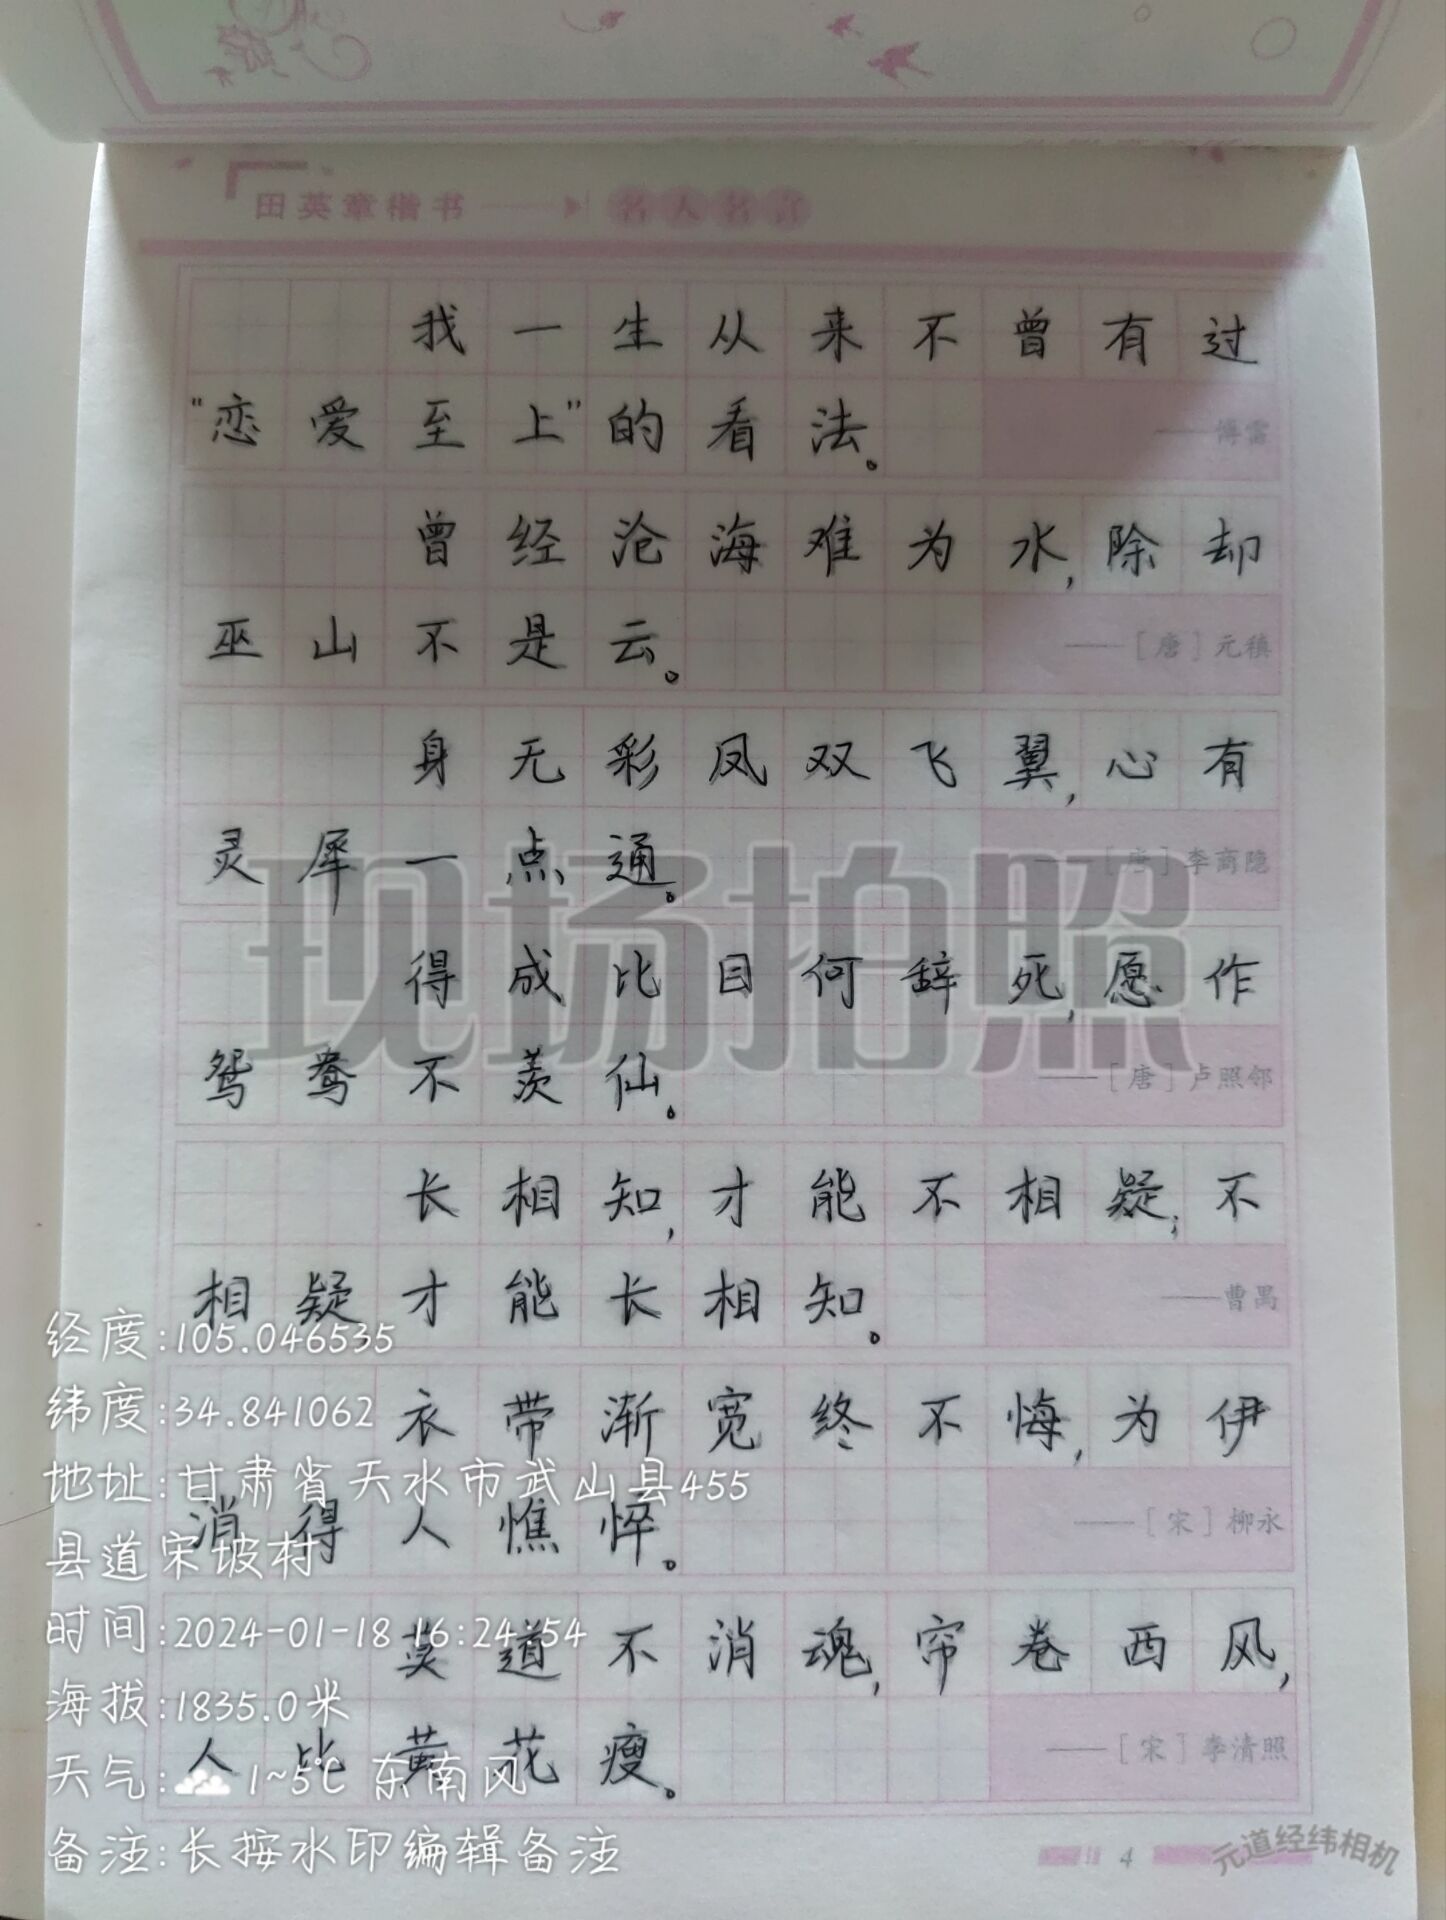 田英章楷书 名人名言
我一生从来不曾有过
“恋爱至上”的看法。
——傅雷
曾经沧海难为水,除却
巫山不是云。
——[唐]元稹
身无彩凤双飞翼,心有
灵犀一点通。
——[唐]李商隐
现场拍照
得成比目何辞死,愿作
鸳鸯不羡仙。
——[唐]卢照邻
长相知,才能不相疑;不
相疑才能长相知。
——曹禺
衣带渐宽终不悔,为伊
消得人憔悴。
——[宋]柳永
莫道不消魂,帘卷西风,
人比黄花瘦。
——[宋]李清照
经度:105.046535
纬度:34.841062
地址:甘肃省天水市武山县455
县道宋坡村
时间:2024-01-18 16:24:54
海拔:1835.0米
天气:☁ 1~5℃ 东南风
备注:长按水印编辑备注
4
元道经纬相机